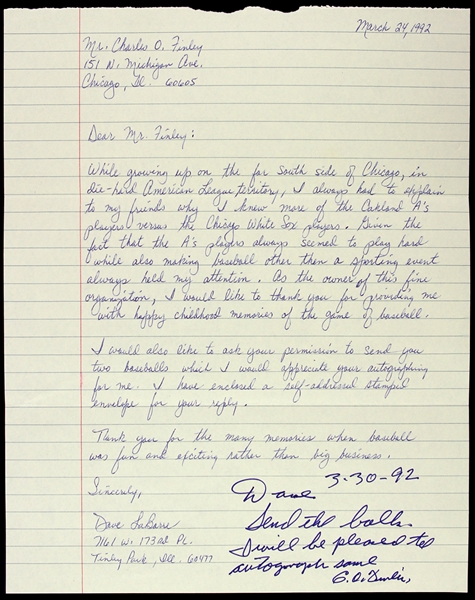 March 24, 1992
Mr. Charles O. Finley
151 N. Michigan Ave.
Chicago, Ill. 60605
Dear Mr. Finley:
While growing up on the far South side of Chicago, in
die-hard American League territory, I always had to explain
to my friends why I knew more of the Oakland A's
players versus the Chicago White Sox players. Given the
fact that the A's players always seemed to play hard
while also making baseball other then a sporting event
always held my attention. As the owner of this fine
organization, I would like to thank you for providing me
with happy childhood memories of the game of baseball.
I would also like to ask your permission to send you
two baseballs which I would appreciate your autographing
for me. I have enclosed a self-addressed stamped
envelope for your reply.
Thank you for the many memories when baseball
was fun and exciting rather then big business.
Sincerely,
Dave LaBarre
7161 W. 173rd Pl.
Tinley Park, Ill. 60477
3-30-92
Dave
Send the balls
I will be pleased to
autograph same
C.O. Finley